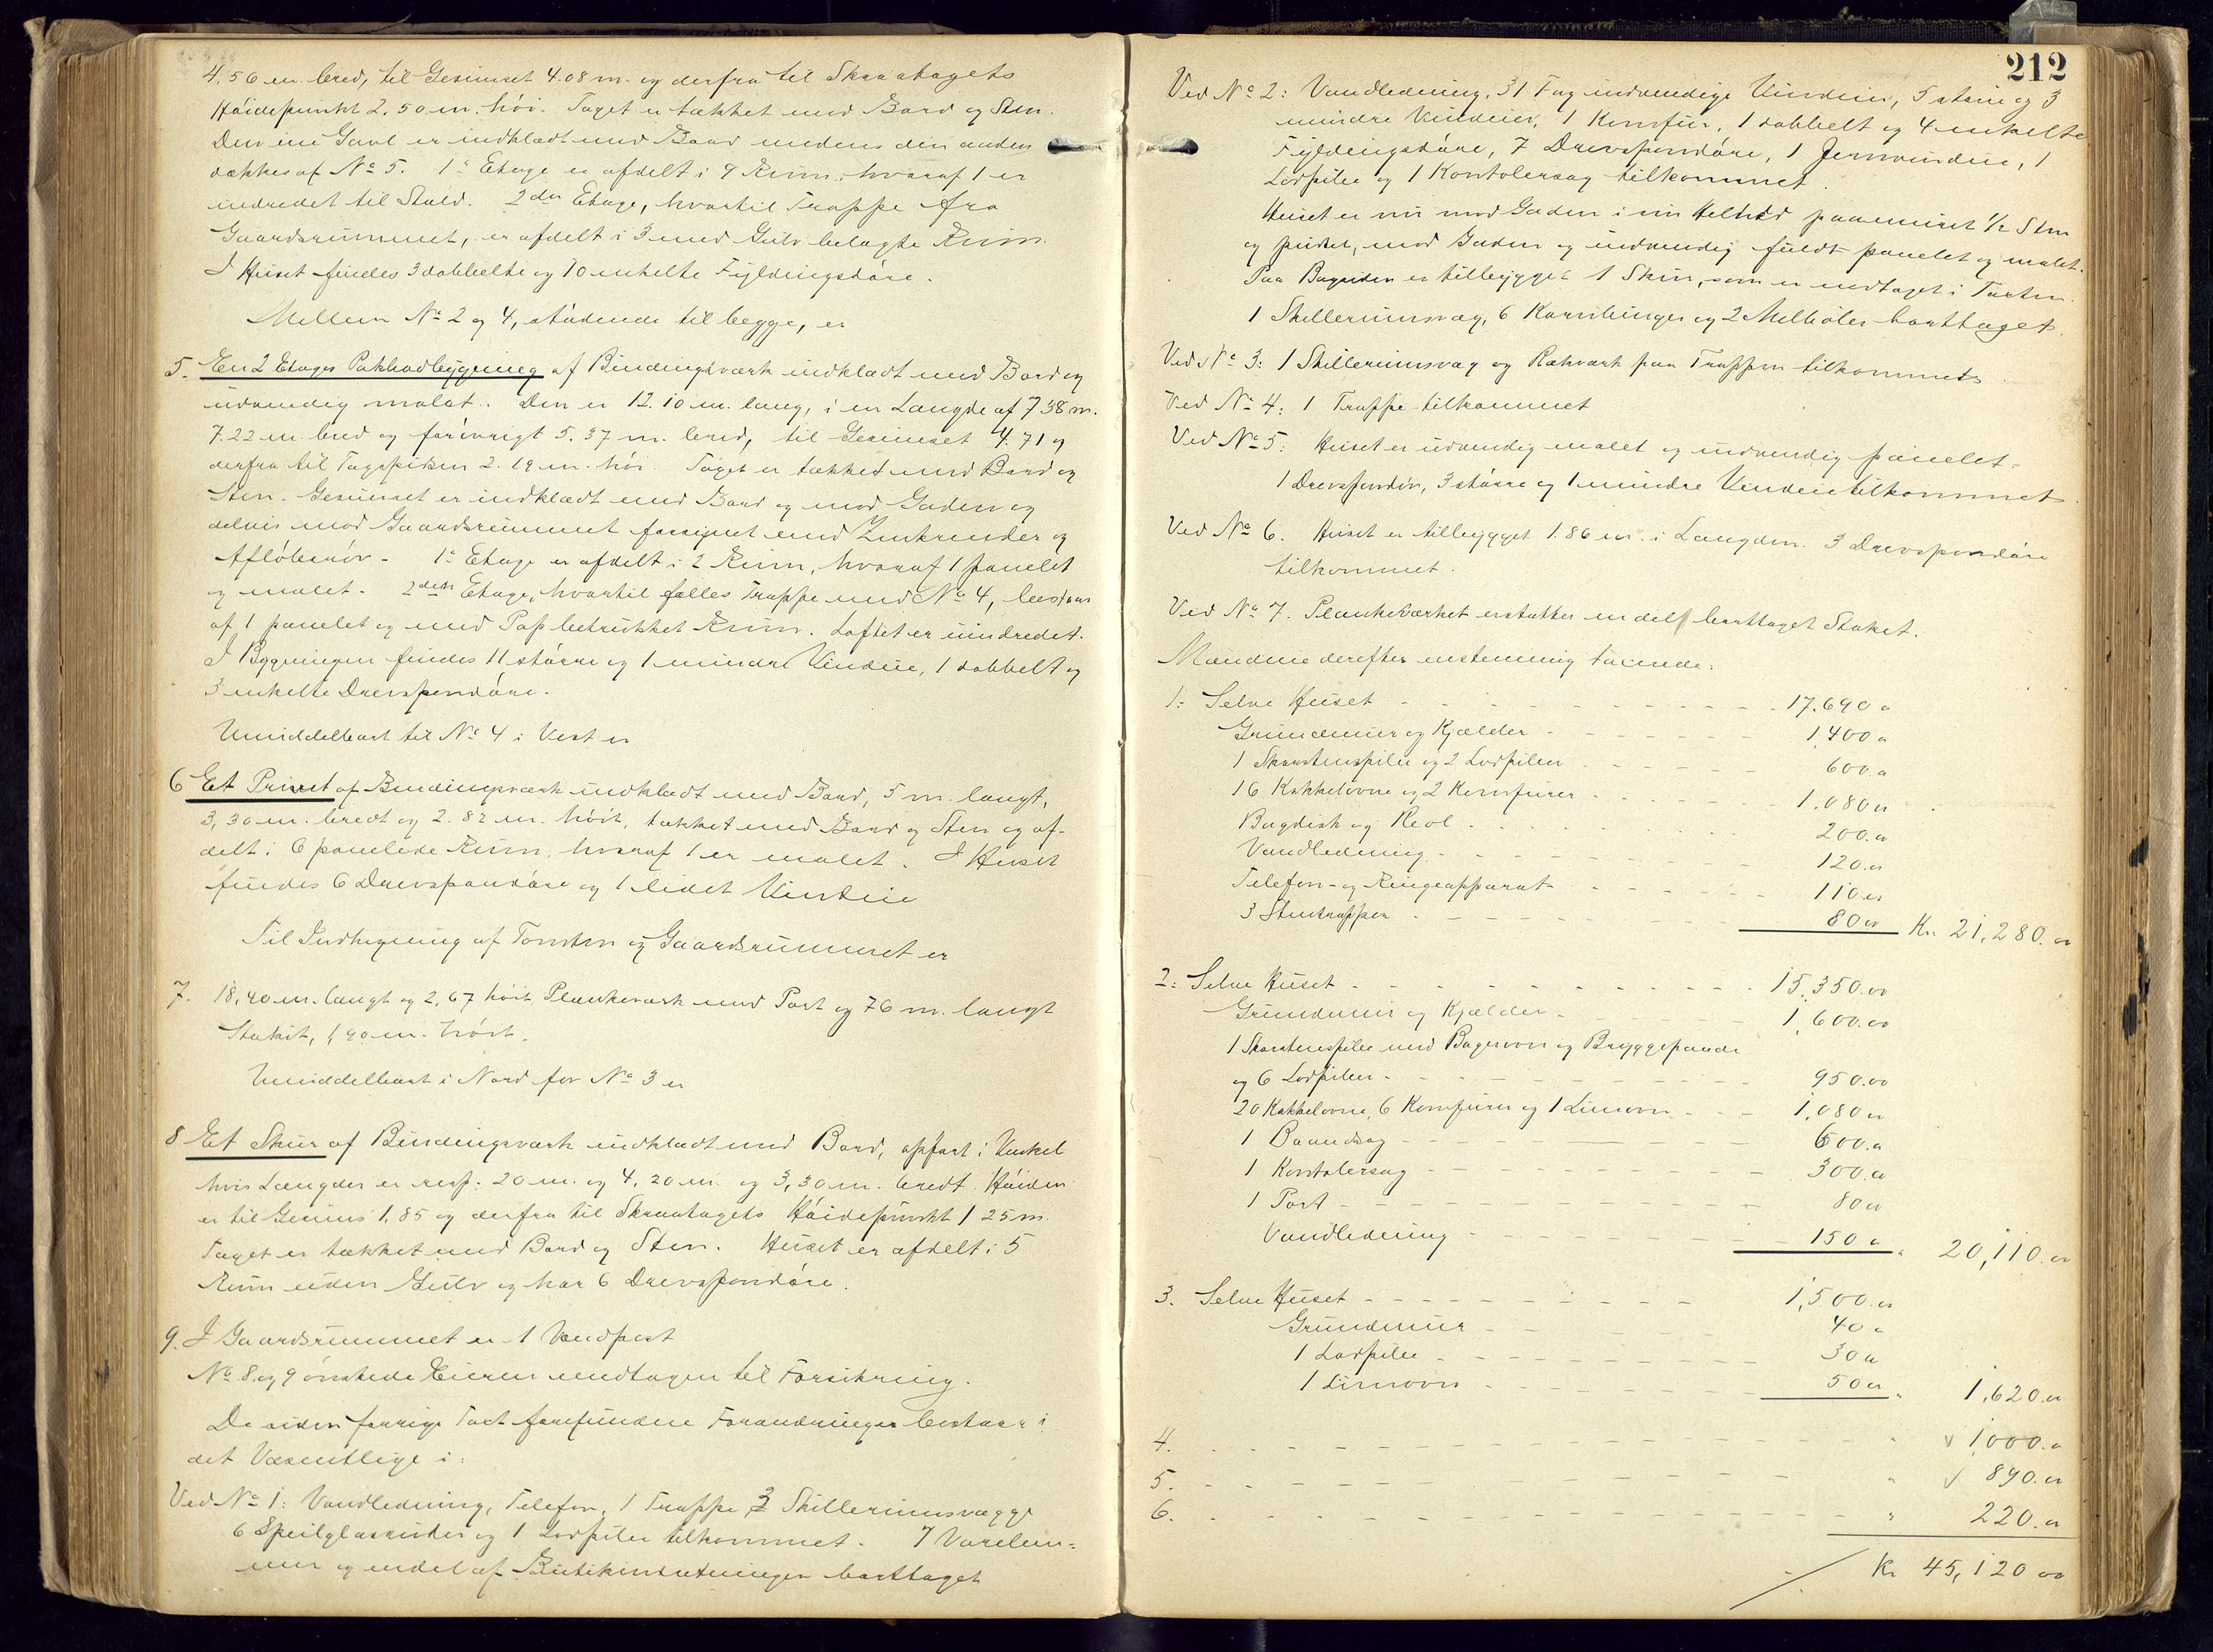 4.56 m. bred, til Gesimset 4.08 m. og derfra til Skraatagets
Höidepunkt 2.50 m. höi. Taget er tækket med Bord og Sten.
Den ene Gavl er indklædt med Bord medens den anden
dækkes af No 5. 1e Etage er afdelt i 9 Rum, hvoraf 1 er
indredet til Stald. 2den Etage, hvortil Trappe fra
Gaardsrummet, er afdelt i 3 med Gulv belagte Rum.
I Huset findes 3 dobbelte og 10 enkelte Fyldingsdöre.
Mellem No 2 og 4, stödende til begge, er
5. En 2 Etages Pakbodbygning af Bindingsværk indklædt med Bord og
udvendig malet. Den er 12.10 m. lang, i en Længde af 7 38 m.
7.22 m. bred og forövrigt 5.37 m. bred, til Gesimset 4.71 og
derfra til Tagspidsen 2.19 m. höi. Taget er tækket med Bord og
Sten. Gesimset er indklædt med Bord og mod Gaden og
delvis mod Gaardsrummet forsynet med Zinkrender og
Aflöbsrör. 1e Etage er afdelt i 2 Rum, hvoraf 1 panelet
og malet. 2den Etage, hvortil fælles Trappe med No 4, bestaar
af 1 panelet og med Pap betrukket Rum. Loftet er uindredet.
I Bygningen findes 11 större og 1 mindre Vinduer, 1 dobbelt og
3 enkelte Drevspendöre.
Umiddelbart til No 4 i Vest er
6 Et Privet af Bindingsværk indklædt med Bord, 5 m. langt,
3,30 m. bredt og 2.82 m. höit, tækket med Bord og Sten og af-
delt i 6 panelede Rum, hvoraf 1 er malet. I Huset
findes 6 Drevspendöre og 1 lidet Vindue
Til Indhegning af Tomten og Gaardsrummet er
7. 18,40 m. langt og 2,67 höit Plankeværk med Port og 76 m. langt
Stakit, 1,90 m. höit.
Umiddelbart i Nord for No 3 er
8 Et Skur af Bindingsværk indklædt med Bord, opfört i Vinkel
hvis Længder er resp: 20 m. og 4.20 m. og 3,30 m. bredt. Höiden
er til Gesims 1.85 og derfra til Skraatagets Höidepunkt 1 25 m.
Taget er tækket med Bord og Sten. Huset er afdelt i 5
Rum uden Gulv og har 6 Drevspendöre.
9. I Gaardsrummet er 1 Vandpost
No 8 og 9 önskede Eieren undtagen til Forsikring.
De siden forrige Taxt forefundne Forandringer bestaar i
det Væsentlige i:
Ved No 1: Vandledning, Telefon, 1 Trappe 3 Skillerumsvægge
6 Speilglasruder og 1 Lodpibe tilkommet. 7 Varelem-
mer og endel af Butikindretningen borttaget
212
Ved No 2: Vandledning, 31 Fag indvendige Vinduer, 5 större og 3
mindre Vinduer, 1 Komfur, 1 dobbelt og 4 enkelte
Fyldingsdöre, 7 Drevspendöre, 1 Jernvindue, 1
Lodpibe og 1 Kontolersag tilkommet.
Huset er nu mod Gaden i sin Helhed paamuret 1/2 Sten
og pudset, mod Gaden og indvendig fuldt panelet og malet.
Paa Bagsiden er tilbygget 1 Skur, som er medtaget i Taxten.
1 Skillerumsvæg, 6 Kornbinger og 2 Melböler borttaget.
Ved No 3: 1 Skillerumsvæg og Rækværk paa Trappen tilkommet
Ved No 4: 1 Trappe tilkommet
Ved No 5: Huset er udvendig malet og indvendig panelet.
1 Drevspendör, 3 större og 1 mindre Vinduer tilkommet
Ved No 6. Huset er tilbygget 1.86 m. i Længden. 3 Drevspendöre
tilkommet.
Ved No 7. Plankeværket erstatter en del borttaget Stakit.
Mændene derefter enstemmig taxerede:
1: Selve Huset 17.690 "
Grundmur og Kjælder 1,400 "
1 Skorstenspibe og 2 Lodpiber 600. "
16 Kakkelovne og 2 Komfurer 1.080 "
Bagdisk og Reol 200. "
Vandledning 120. "
Telefon- og Ringeapparat 110 "
3 Stentrapper 80 " Kr. 21,280. "
2: Selve Huset 15,350.00
Grundmur og Kjælder 1,600.00
1 Skorstenspibe med Bagerovn og Bryggepande
og 6 Lodpiber 950.00
20 Kakkelovne, 6 Komfurer og 1 Limovn 1,080 "
1 Baandsag 600. "
1 Kontolersag 300. "
1 Port 80 "
Vandledning 150 " " 20,110. "
3. Selve Huset 1,500. "
Grundmur 40 "
1 Lodpibe 30 "
1 Limovn 50 " " 1,620. "
4. " √ 1,000. "
5. " √ 890. "
6. " 220. "
Kr 45,120 00